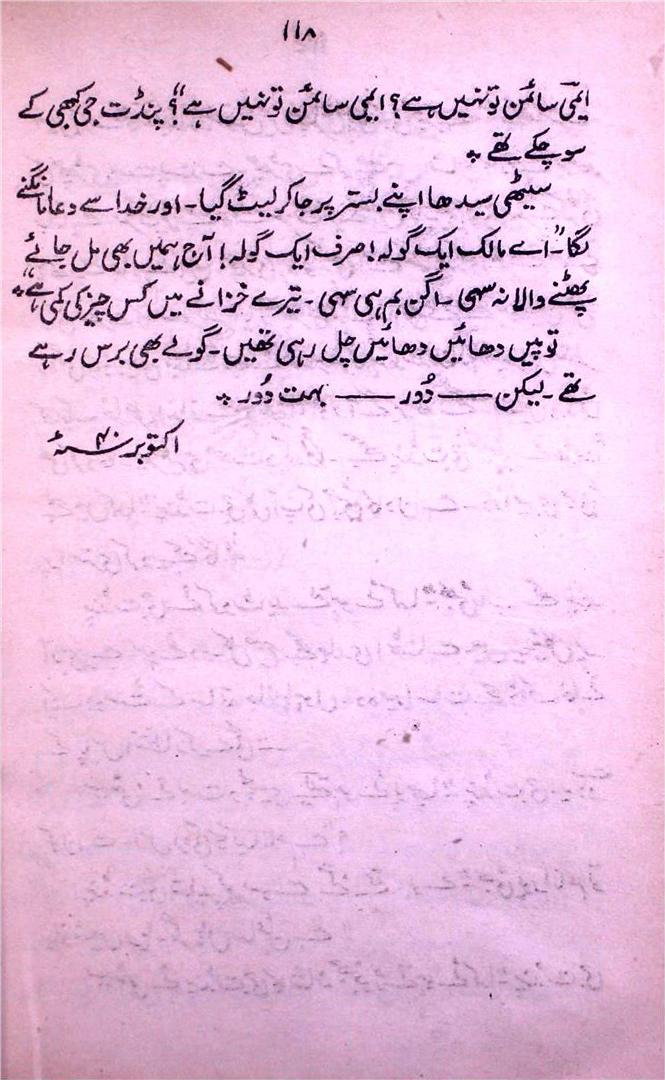 ۱۱۸
ایمی سائمن تو نہیں ہے؟ ایمی سائمن تو نہیں ہے"؟ پنڈت جی کبھی کے
سو چکے تھے ۔
سیٹھی سیدھا اپنے بستر پر جا کر لیٹ گیا۔ اور خدا سے دعا مانگنے
لگا۔ "اے مالک ایک گولہ! صرف ایک گولہ! آج ہمیں بھی مل جائے
پھٹنے والا نہ سہی ۔ اگن بم ہی سہی ۔ تیرے خزانے میں کس چیز کی کمی ہے" ۔
توپیں دھائیں دھائیں چل رہی تھیں ۔ گولے بھی برس رہے
تھے ۔ لیکن —— دُور —— بہت دُور ۔
اکتوبر ۴۰ سنہ ء